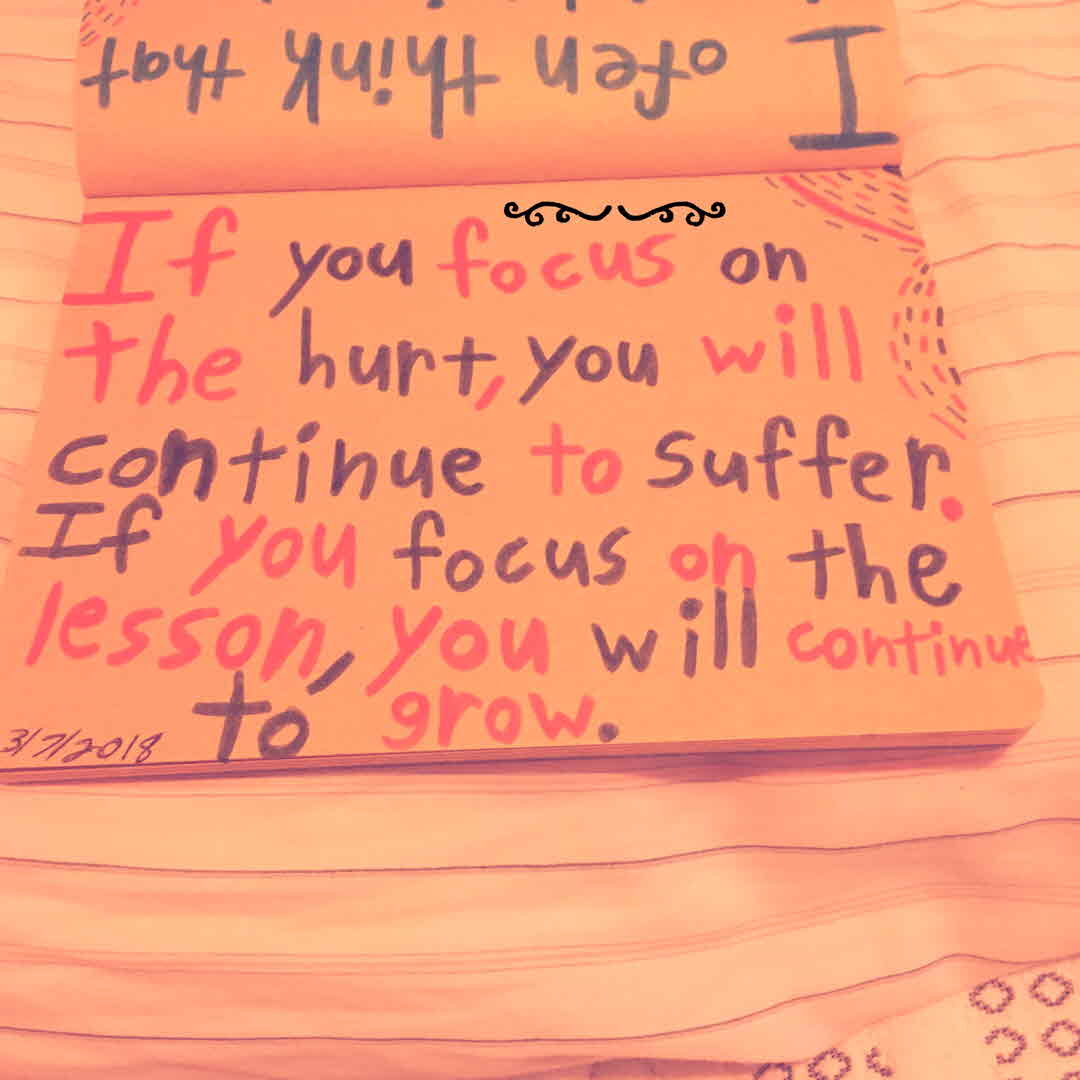 I ofen think that
If you focus on
the hurt, you will
continue to suffer.
If you focus on the
lesson, you will continue
to grow.
3/7/2018